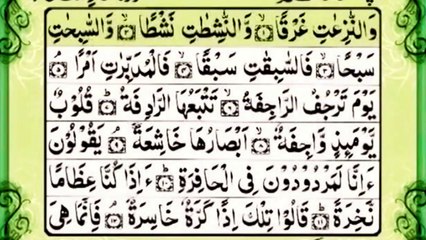 وَالنّٰزِعٰتِ غَرْقًا ۙ﴿۱﴾ وَّالنّٰشِطٰتِ نَشْطًا ۙ﴿۲﴾ وَّالسّٰبِحٰتِ
سَبْحًا ۙ﴿۳﴾ فَالسّٰبِقٰتِ سَبْقًا ۙ﴿۴﴾ فَالْمُدَبِّرٰتِ اَمْرًا ۘ﴿۵﴾
يَوْمَ تَرْجُفُ الرَّاجِفَةُ ۙ﴿۶﴾ تَتْبَعُهَا الرَّادِفَةُ ؕ﴿۷﴾ قُلُوْبٌ
يَّوْمَئِذٍ وَّاجِفَةٌ ۙ﴿۸﴾ اَبْصَارُهَا خَاشِعَةٌ ۘ﴿۹﴾ يَقُوْلُوْنَ
ءَاِنَّا لَمَرْدُوْدُوْنَ فِى الْحَافِرَةِ ؕ﴿۱۰﴾ ءَاِذَا كُنَّا عِظَامًا
نَّخِرَةً ؕ﴿۱۱﴾ قَالُوْا تِلْكَ اِذًا كَرَّةٌ خَاسِرَةٌ ۘ﴿۱۲﴾ فَاِنَّمَا هِىَ